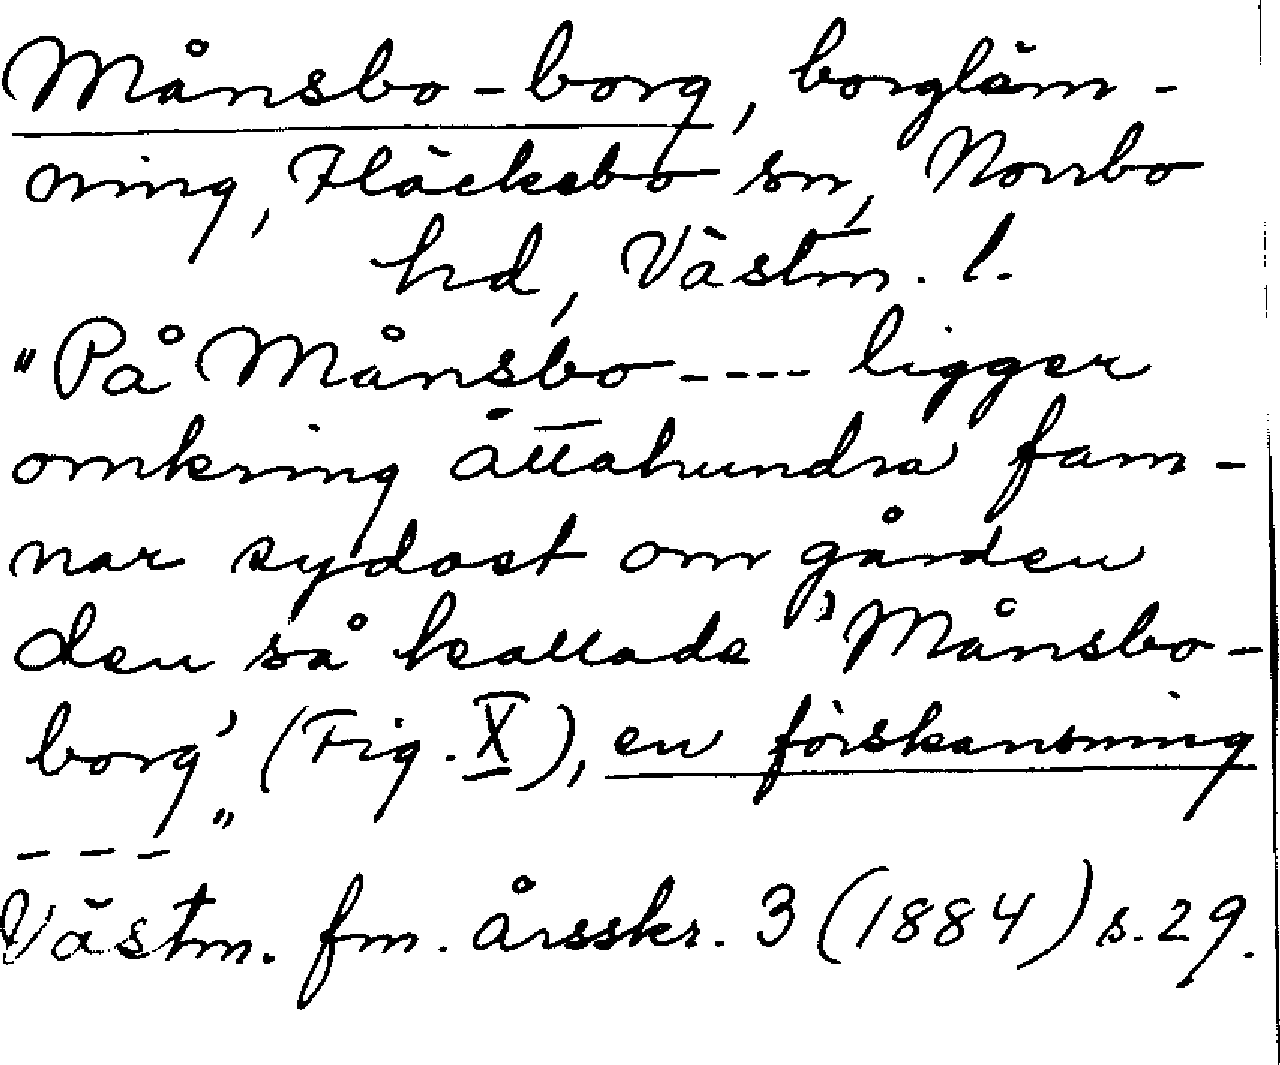 Månsbo-borg, borgläm-
ning, Fläckebo sn, Norrbo
hd, Västm. l.
"På Månsbo ---- ligger
omkring åttahundra fam-
nar sydost om gården
den så kallade 'Månsbo-
borg' (Fig. X), en förskansning
---"
Västm. fm. årsskr. 3 (1884) s. 29.